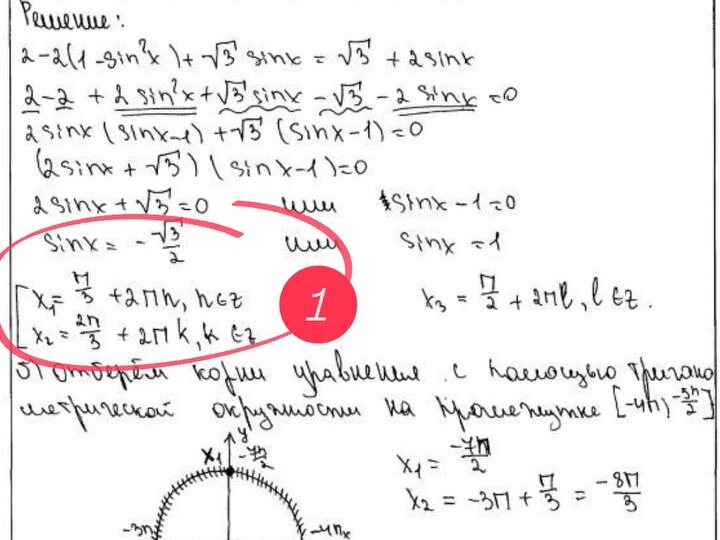 Решение:
2-2(1-sin²x)+√3 sinx = √3 + 2sinx
2-2 + 2sin²x+√3sinx - √3 - 2sinx =0
2sinx(sinx-1)+√3(sinx-1)=0
(2sinx+√3)(sinx-1)=0
2sinx+√3=0 или sinx-1=0
sinx= -√3/2 или sinx=1
x₁= π/3 +2πn, n∈z x₃ = π/2 + 2πl, l∈z.
x₂ = 2π/3 + 2πk, k∈z
1
б) Отберём корни уравнения с помощью тригоно
метрической окружности на промежутке [-4π; -5π/2]
y
x₁ -7π/2 x₁ = -7π/2
x₂ = -3π + π/3 = -8π/3
-3π -4π x